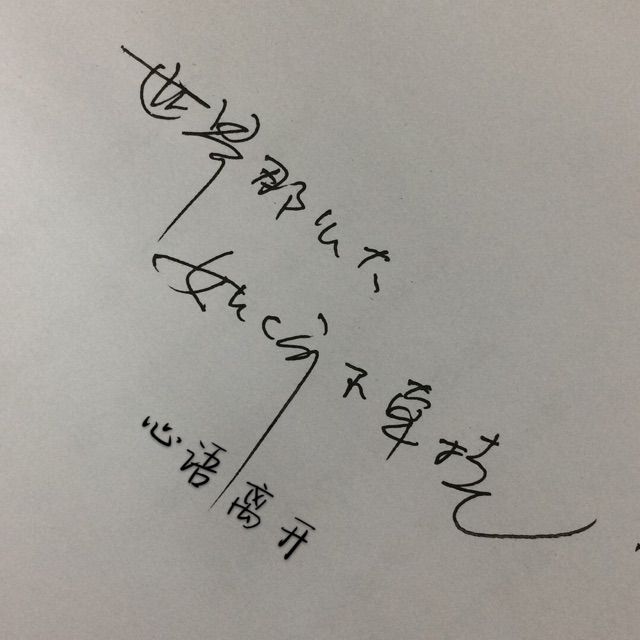 世界那么大
如何不算抗
心语离开